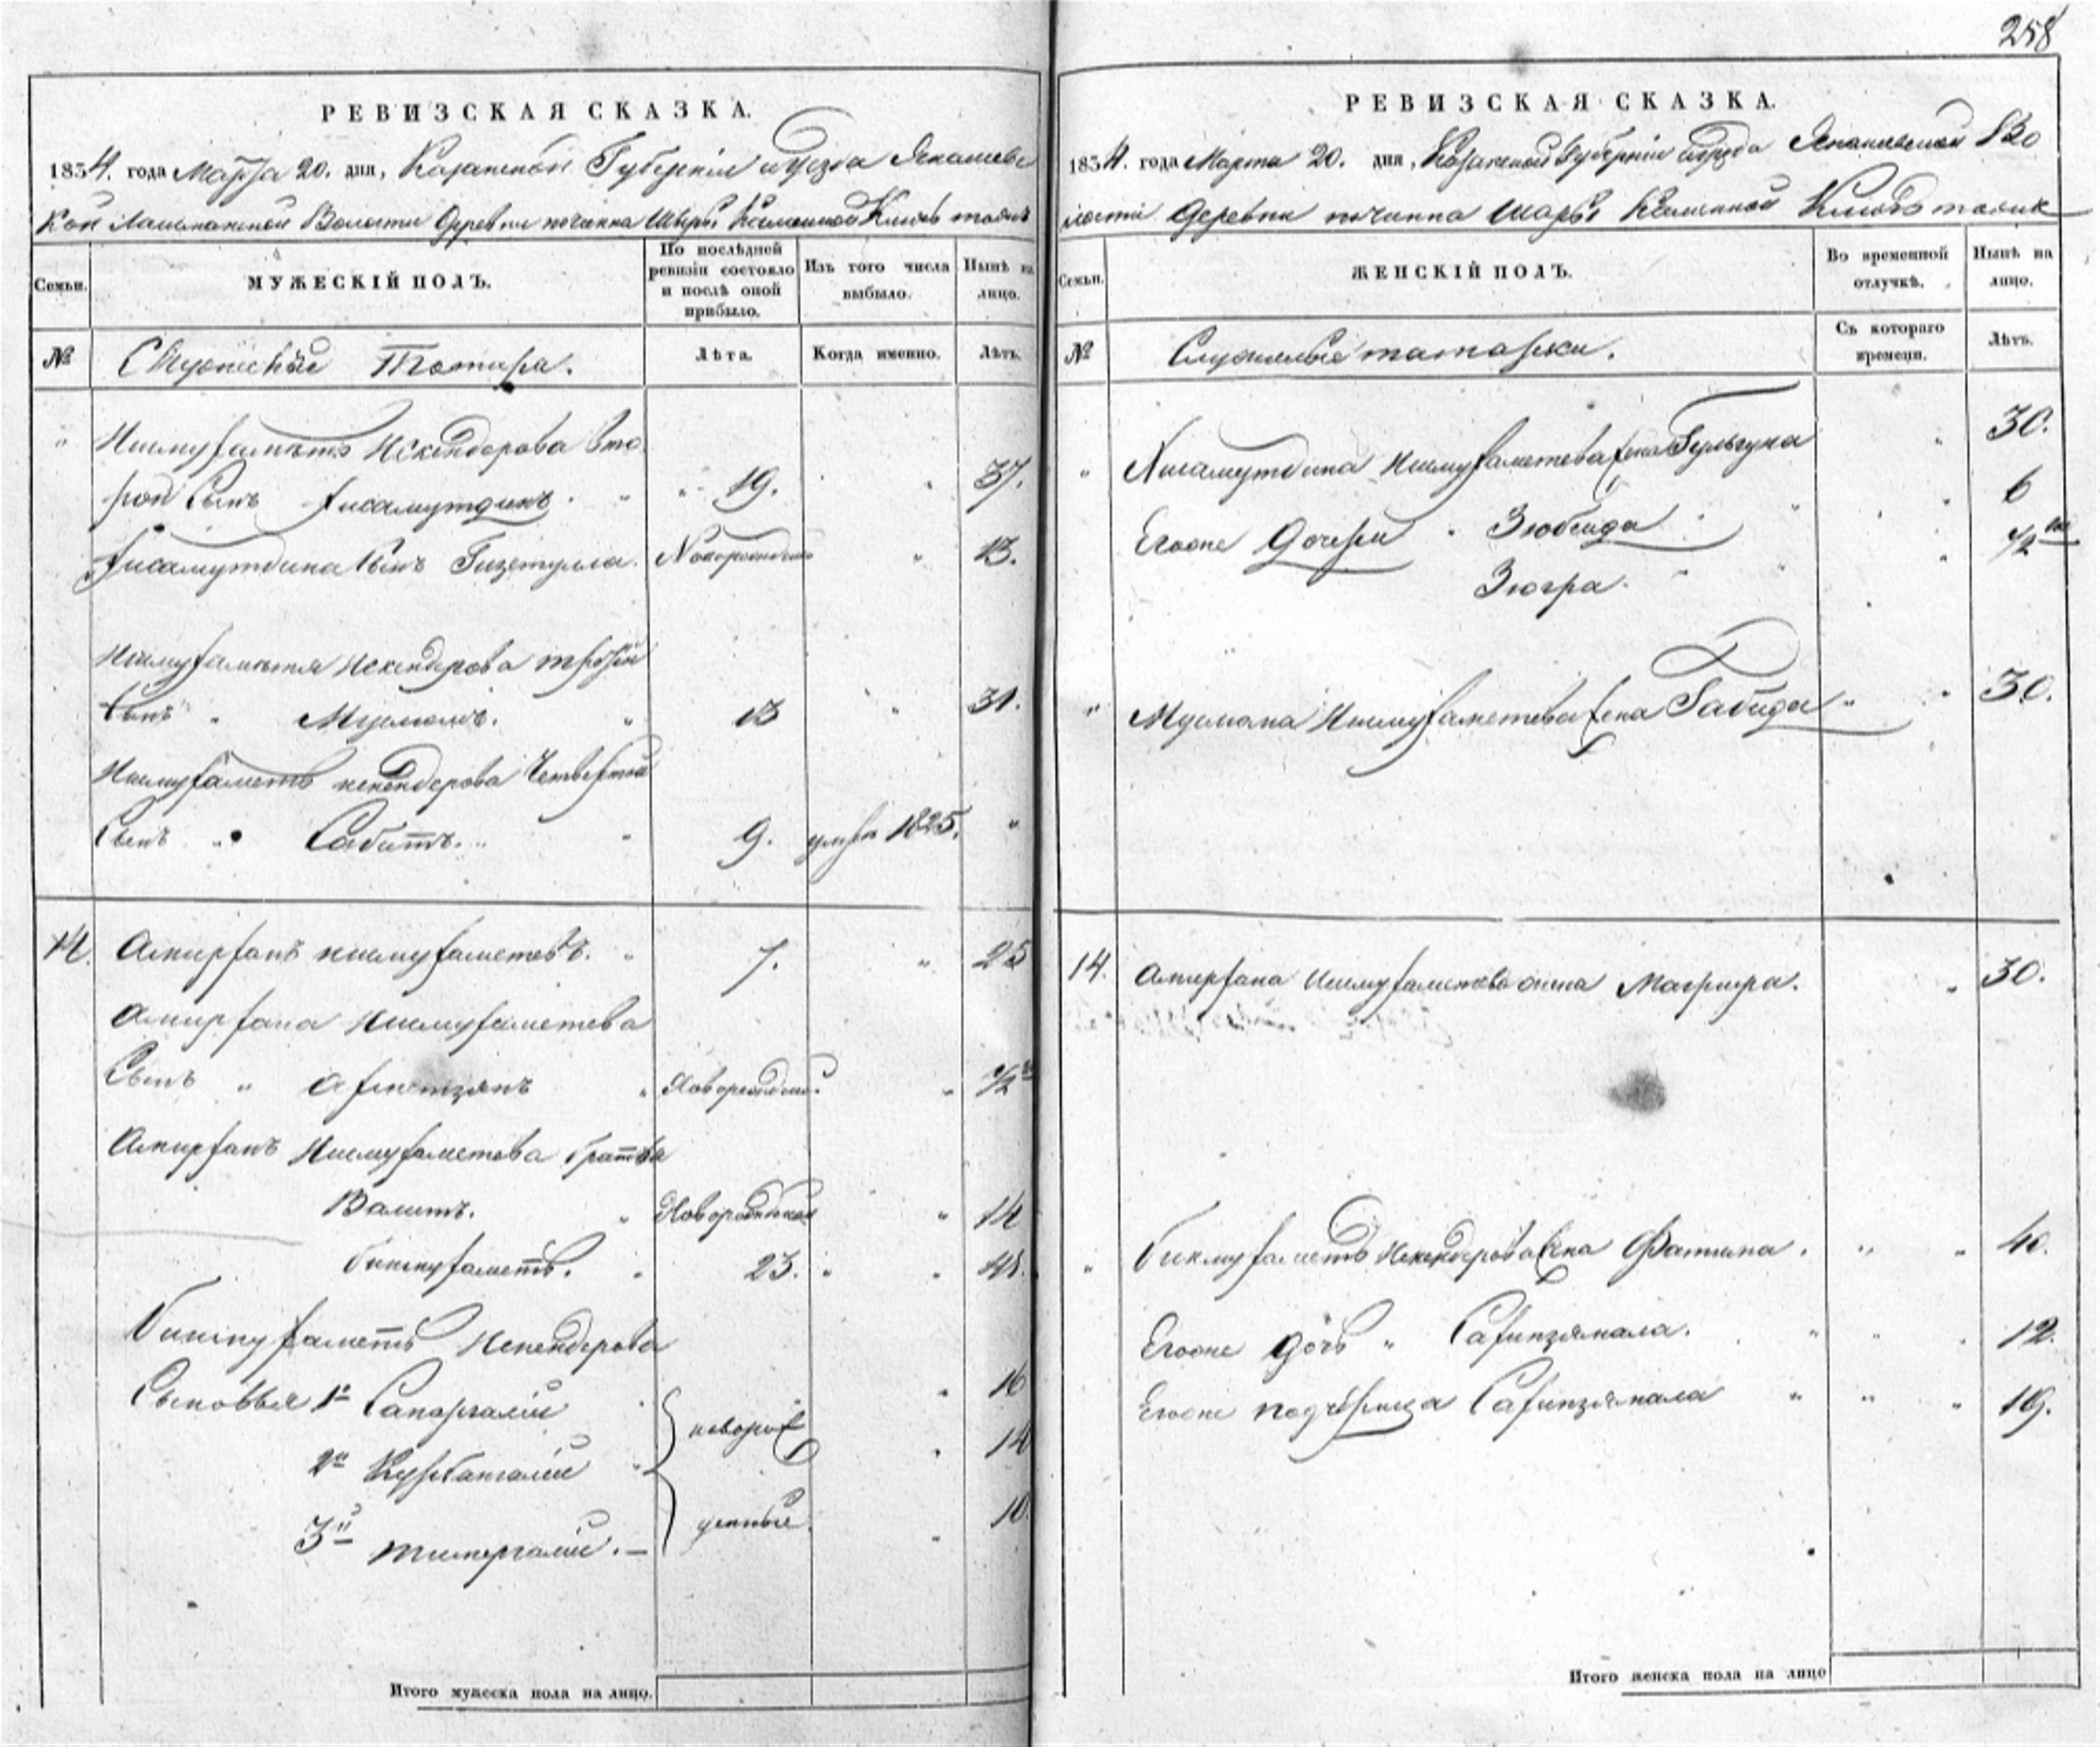 258
РЕВИЗСКАЯ СКАЗКА.
1834. года Марта 20. дня, Казанской Губернии и Уезда
кой Лашманской Волости Деревни починка Шары Каменной Ключь тожъ
Семьи.
МУЖЕСКІЙ ПОЛЪ.
По послѣдней ревизіи состояло и послѣ оной прибыло.
Изъ того числа выбыло.
Нынѣ на лицо.
№
Служилые Татара.
Лѣта.
Когда именно.
Лѣтъ.
" Ишмухаметъ Искендерова вто
рой Сынъ Хисамутдинъ. " 19. " 37.
Хисамутдина Сынъ Гизетулла. Новорожденой " 13.
Ишмухаметя Искендерова третей
Сынъ " Мусмонъ. " 13 " 31.
Ишмухаметъ искендерова Четвертой
Сынъ " Сабитъ. " 9. умре 1825. "
14. Амирханъ ишмухаметевъ. " 7. " 25
Амирхана Ишмухаметева
Сынъ " Ахметзянъ " Новорожденой. " 1/2
Амирханъ Ишмухаметева братья
Валитъ. " Новорожденой " 14
бикмухаметъ. " 23. " 41.
бикмухаметъ Искендерова
Сыновья 1й Сапаргалій " 16
2й Курбангалій " новорож " 14
3й тимергалій. денные. " 10.
Итого мужеска пола на лицо.
РЕВИЗСКАЯ СКАЗКА.
1834. года Марта 20. дня, Казанской Губерніи Уезда Во
лости Деревни починка Шары Каменной Ключь тожъ
Семьи.
ЖЕНСКІЙ ПОЛЪ.
Во временной отлучкѣ.
Нынѣ на лицо.
№
Служилые татарки.
Съ котораго времени.
Лѣтъ.
" Хисамутдина Ишмухаметева жена Гульгуна " 30.
Егоже Дочери " Зюбеида " " 6
Зюгра. " " 1/2
" Мусмона Ишмухаметева жена Габида " " 30.
14. Амирхана Ишмухаметева жена Магрифа. " 30.
" бикмухаметъ Искендерова жена Фатима. " " 40.
Егоже дочь " Сафинзямала. " " 12.
Егоже подчерица Сафинзямала " " 19.
Итого женска пола на лицо